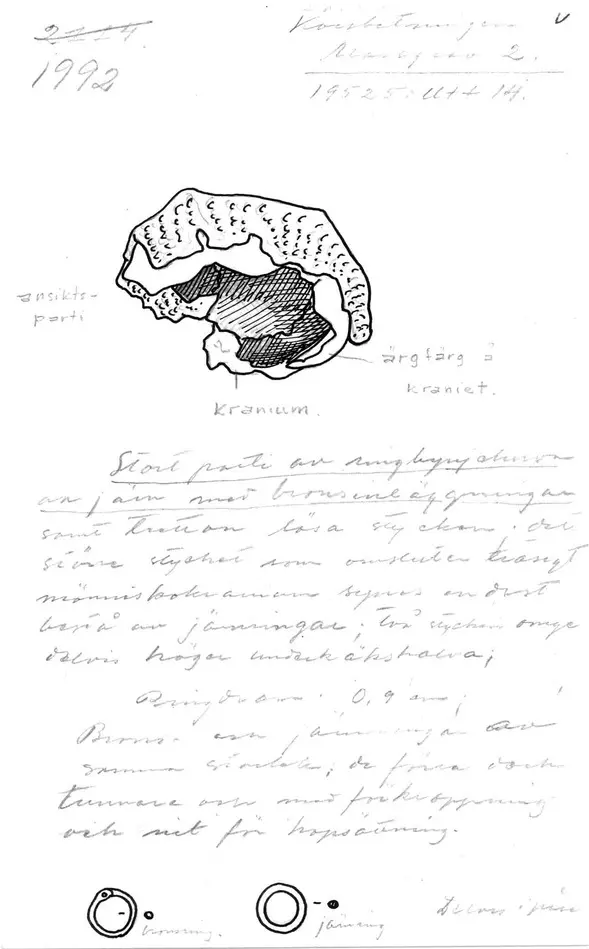 2114.
1992
Korsbetningen
Massgrav 2.
19525: Utt 14.
v
ansikts-
parti
ärgfärg å
kraniet.
Kranium.
Stort parti av ringbrynjehuva
av järn med bronsinläggningar
samt tretton lösa stycken; det
större stycket som omsluter trasigt
människokranium synes endast
bestå av järnringar; två stycken omge
delvis höger underkäkshalva;
Ringdiam. 0,9 cm;
Brons- och järnringar av
samma storlek; de förra dock
tunnare och med förkroppning
och nit för hopsättning.
bronsring.
järnring